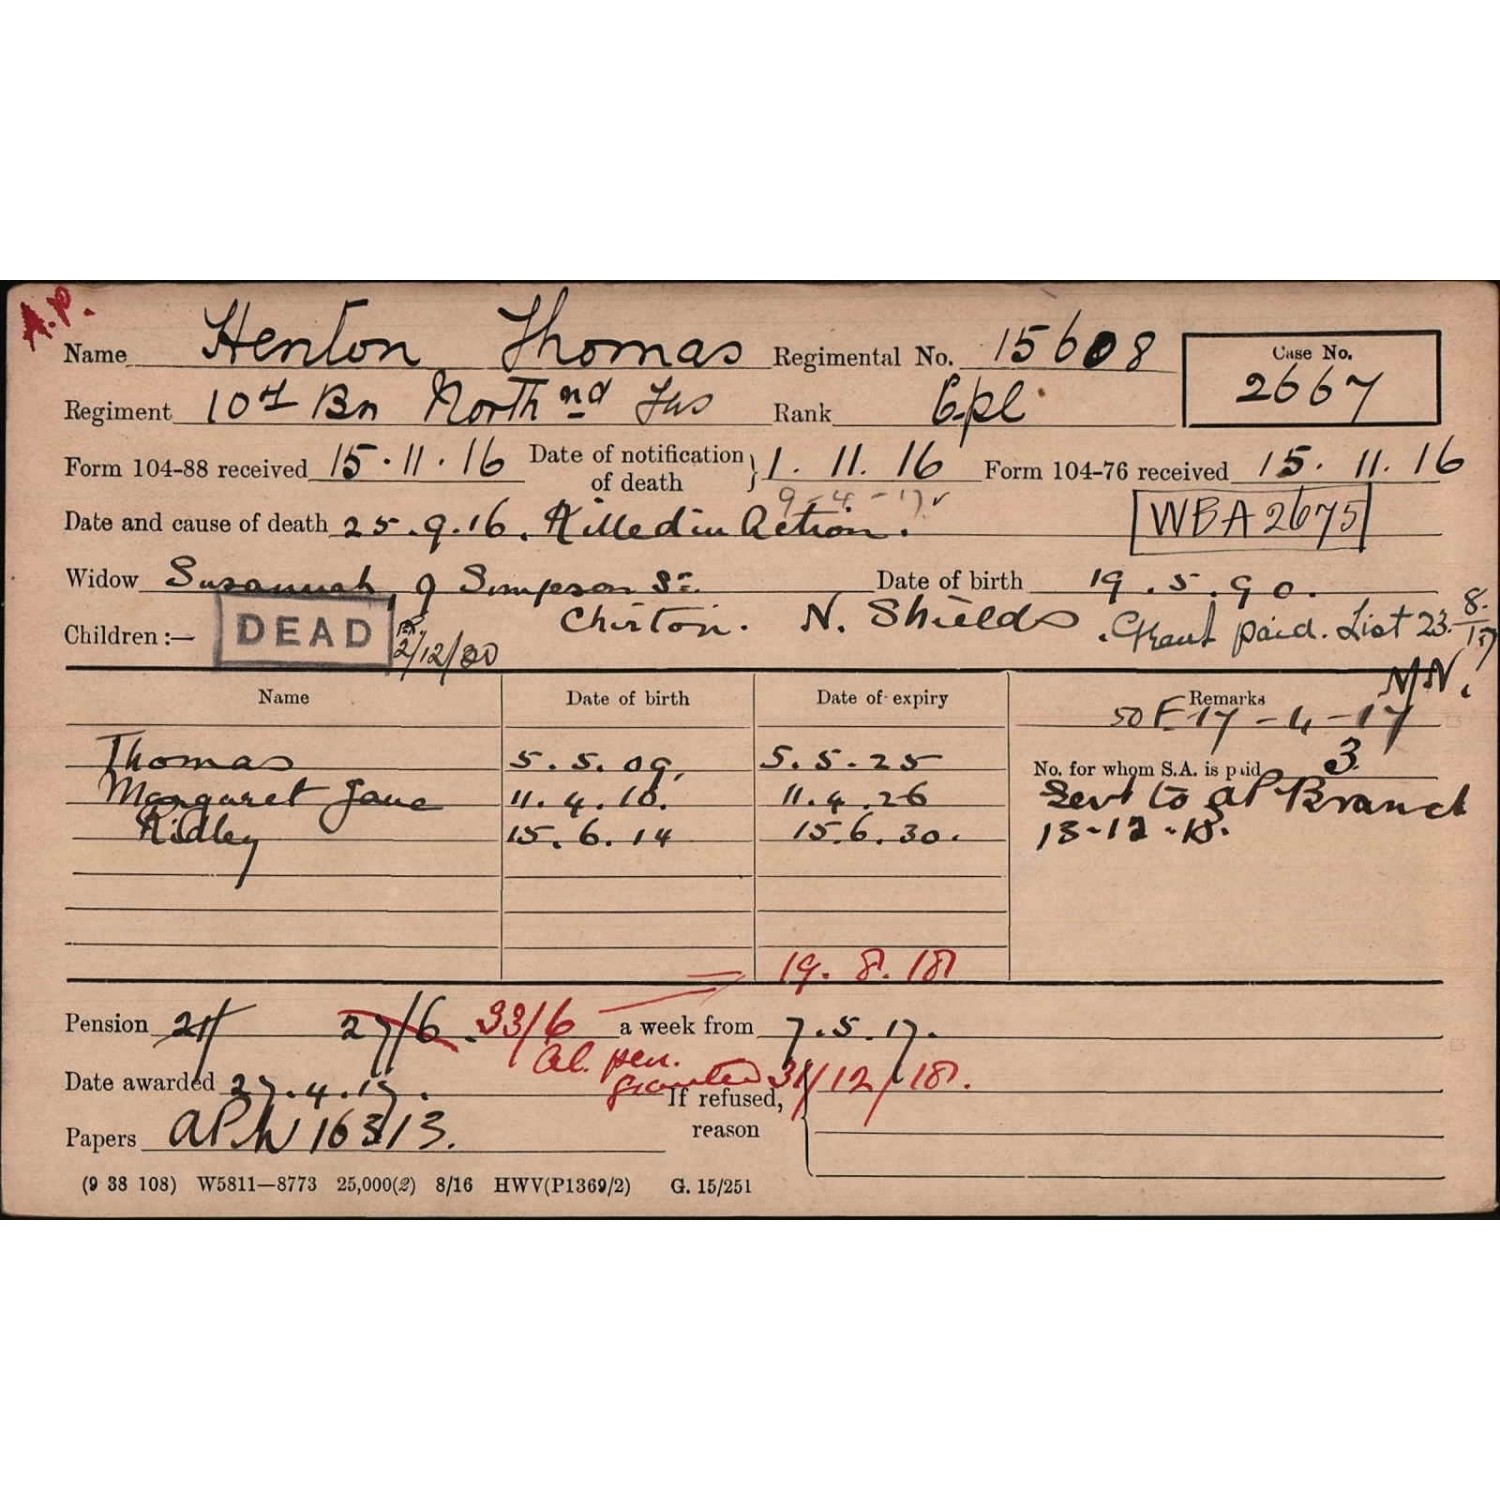 A.P.
Name Henton Thomas Regimental No. 15608
Case No.
2667
Regiment 10th Bn North'nd Fus Rank Cpl.
Form 104-88 received 15.11.16 Date of notification of death } 1.11.16 Form 104-76 received 15.11.16
9-4-17
Date and cause of death 25.9.16. Killed in Action. WBA2675
Widow Susannah, 9 Simpson St. Date of birth 19.5.90.
Children :— DEAD 2/12/80 Chirton. N. Shields. Grant paid. List 23. 8/17
N/N.
Name Date of birth Date of expiry Remarks
50 F 17-4-17
Thomas 5.5.09. 5.5.25 No. for whom S.A. is paid 3
Margaret Jane 11.4.10. 11.4.26 Sent to AP Branch
Ridley 15.6.14 15.6.30. 13-12-18.
19.8.18
Pension 21/ 27/6. 33/6 a week from 7.5.17.
Al. pen.
granted 31/12/18.
Date awarded 27.4.17. If refused,
reason
Papers APW 16313.
(9 38 108) W5811—8773 25,000(2) 8/16 HWV(P1369/2) G. 15/251